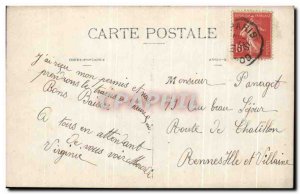 CARTE POSTALE
CORRESPONDANCE
ADRESSE
J'ai reçu mon permis et nous
prendrons le train
Bons Baisers
A tous en attendant
de vous voir
Virginie
Monsieur Panaget
au beau Séjour
Route de Chatillon
Rennes Ille et Vilaine